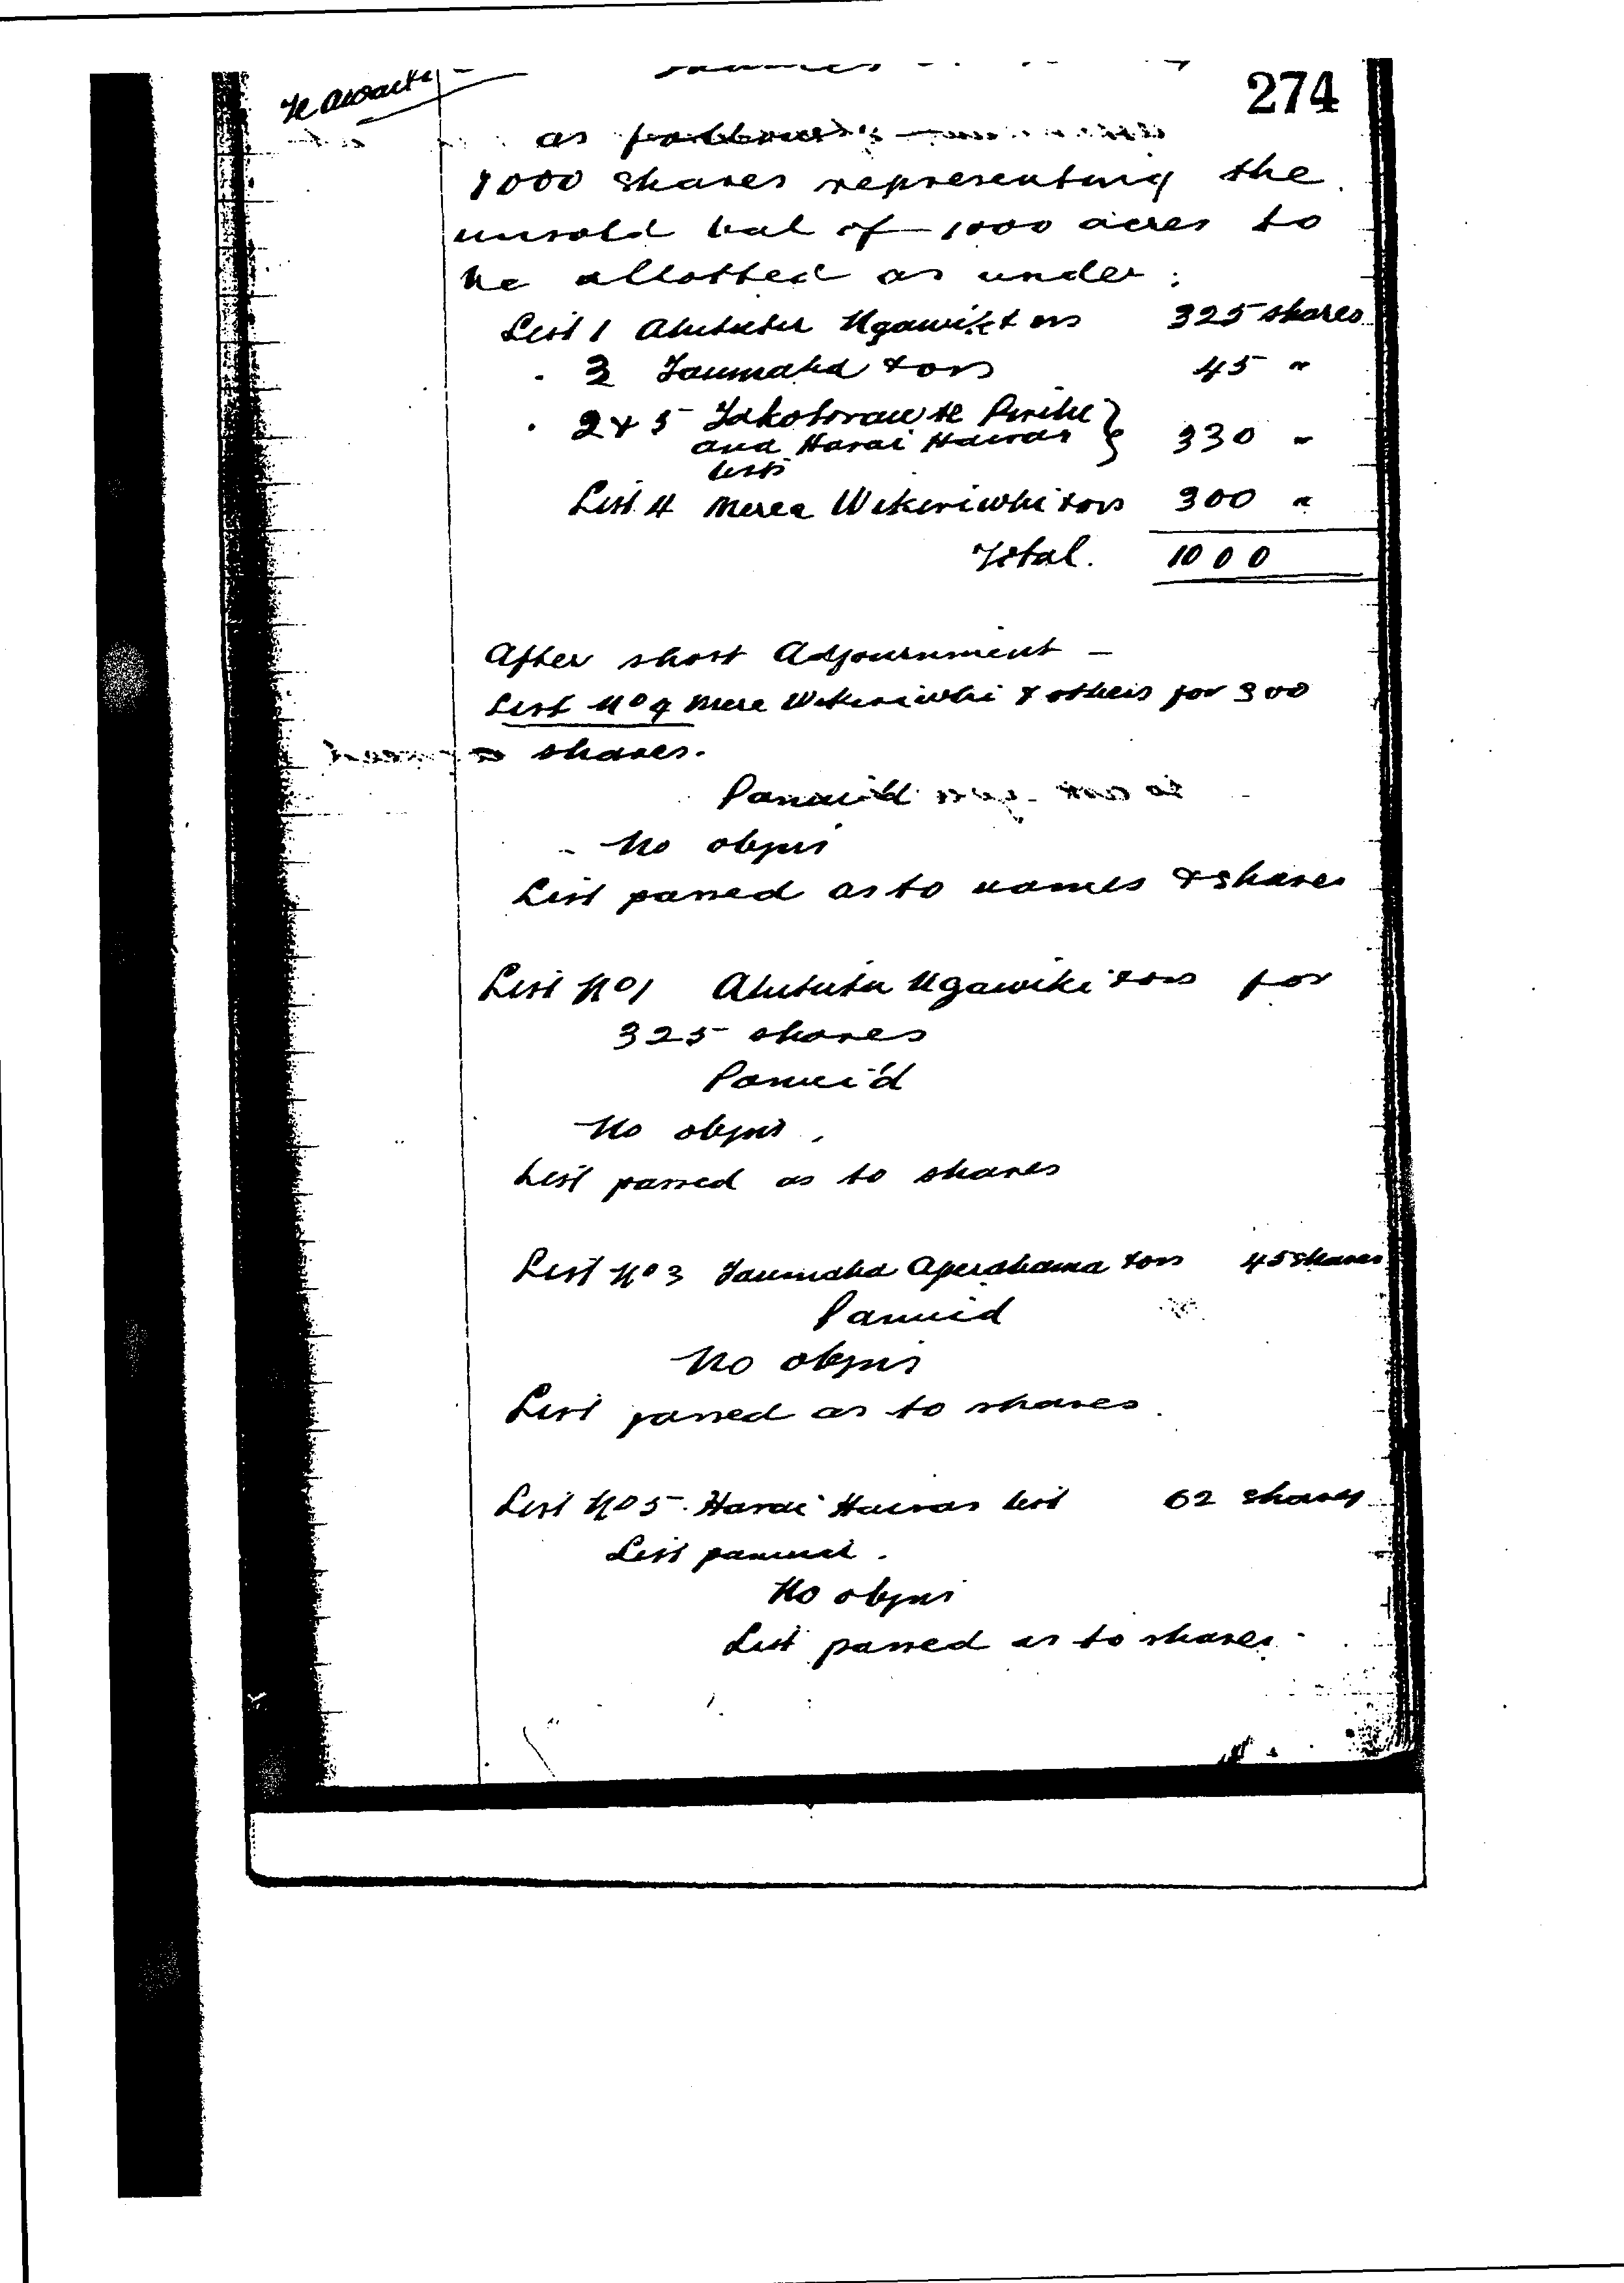 274
as follows
1000 shares representing the
unsold bal of 1000 acres to
be allotted as under:
List 1 Ahitutu Ngawiki & ors 325 shares
" 3 Taumaha & ors 45 "
" 2 & 5
and Harai Hawras } 330 "
lists
List 4 Merea Wikiriwhi & ors 300 "
Total. 1000
After short Adjournment –
List No 4 Mere Wikiriwhi & others for 300
shares.
Panui'd
No objns
List passed as to names & shares
List No 1 Ahitutu Ngawiki & ors for
325 shares
Panui'd
No objns.
List passed as to shares
List No 3 Taumaha Aperahama & ors 45 shares
Panuid
No objns
List passed as to shares.
List No 5. Harai Hawras list 62 shares
List panuid.
No objns
List passed as to shares